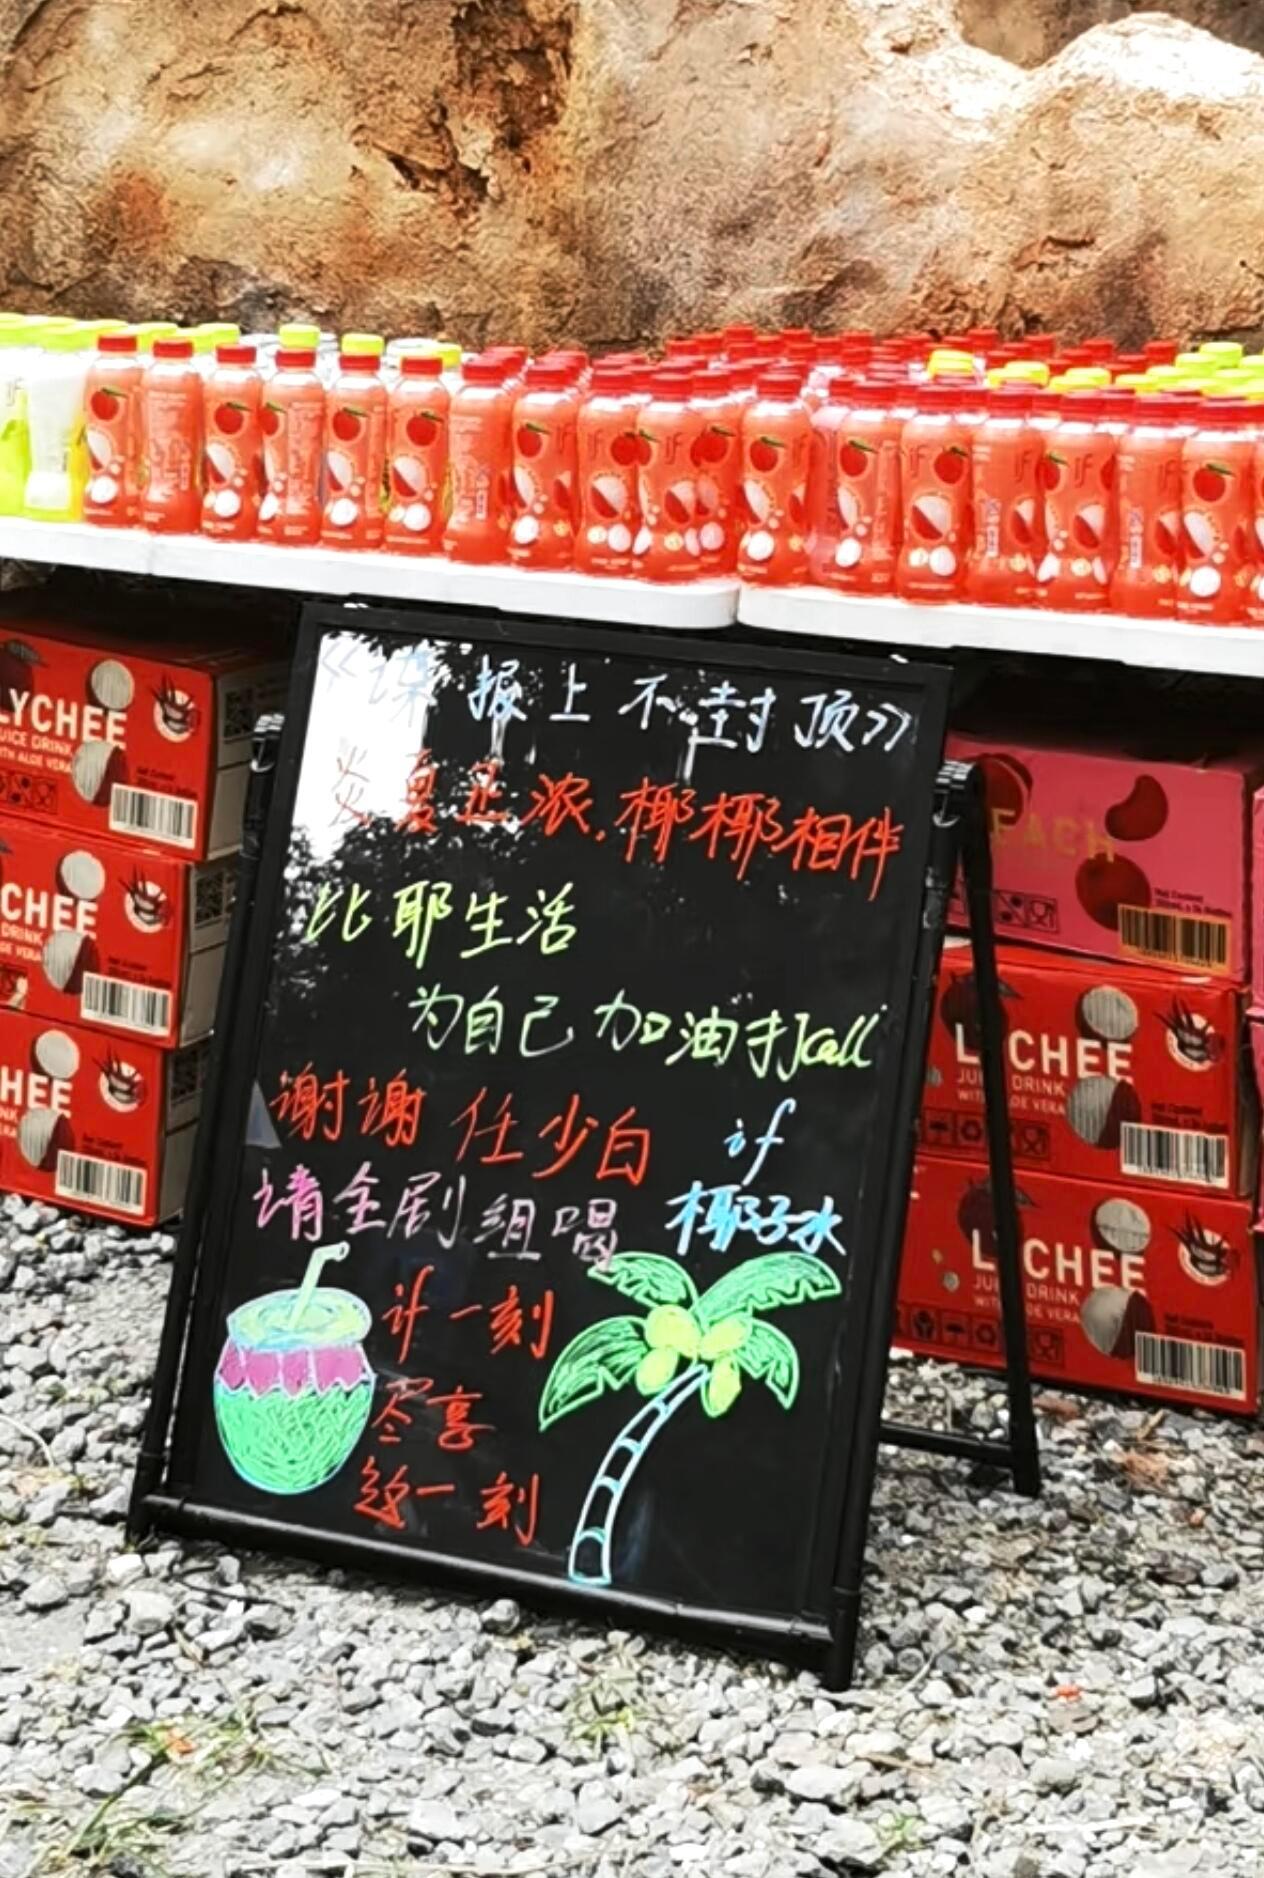 《谍报上不封顶》
炎夏正浓,椰椰相伴
比耶生活
为自己加油打call
谢谢 任少白
请全剧组喝
if
椰子水
计一刻
尽享
这一刻
LYCHEE
JUICE DRINK
WITH ALOE VERA
CHEE
DRINK
ALOE VERA
HEE
PEACH
LYCHEE
JUICE DRINK
WITH ALOE VERA
LYCHEE
JUICE DRINK
WITH ALOE VERA
if